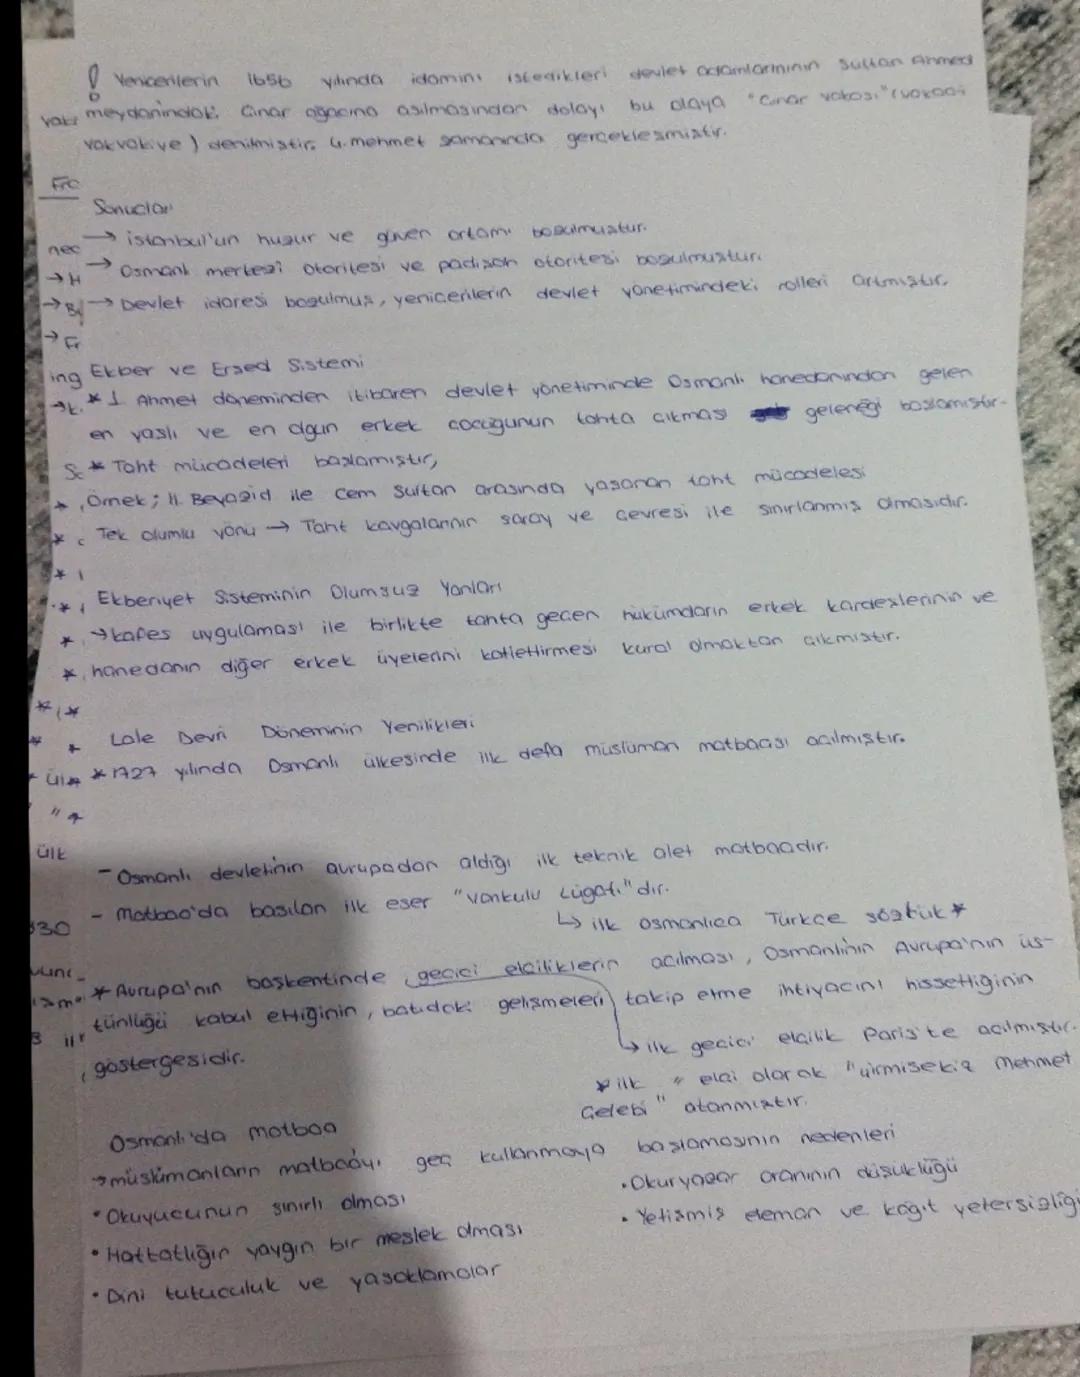 ! Yeniçerilerin 1656 yılında idamını istedikleri devlet adamlarının Sultan Ahmed
meydanındaki Çınar ağacına asılmasından dolayı bu olaya "Çınar vakası" (vakaa-i
vakvakiye) denilmiştir. 4. mehmet zamanında gerçekleşmiştir.
Sonuçları
→ istanbul'un huzur ve güven ortamı bozulmuştur.
→ Osmanlı merkezi otoritesi ve padişah otoritesi bozulmuştur.
→ Devlet idaresi bozulmuş, yeniçerilerin devlet yönetimindeki rolleri artmıştır.
Ekber ve Erşed Sistemi
* I Ahmet döneminden itibaren devlet yönetiminde Osmanlı hanedanından gelen
en yaşlı ve en olgun erkek çocuğunun tahta çıkması geleneği başlamıştır.
* Taht mücadeleri başlamıştır,
Örnek; II. Beyazid ile Cem Sultan arasında yaşanan taht mücadelesi
Tek olumlu yönü → Taht kavgalarının saray ve çevresi ile sınırlanmış olmasıdır.
Ekberiyet Sisteminin Olumsuz Yanları
→ kafes uygulaması ile birlikte tahta geçen hükümdarın erkek kardeşlerinin ve
hanedanın diğer erkek üyelerini katlettirmesi kural olmaktan çıkmıştır.
Lale Devri Döneminin Yenilikleri
* 1727 yılında Osmanlı ülkesinde ilk defa müslüman matbaası açılmıştır.
- Osmanlı devletinin avrupadan aldığı ilk teknik alet matbaadır.
- Matbaa'da basılan ilk eser "vankulu Lügatı" dır.
↳ ilk osmanlıca Türkçe sözlük *
* Avrupa'nın başkentinde geçici elçiliklerin açılması, Osmanlının Avrupa'nın üs-
tünlüğü kabul ettiğinin, batıdaki gelişmeleri takip etme ihtiyacını hissettiğinin
göstergesidir.
↳ ilk geçici elçilik Paris'te açılmıştır.
* ilk " elçi olarak "yirmisekiz Mehmet
Çelebi" atanmıştır.
Osmanlı'da matbaa
→ müslümanların matbaayı geç kullanmaya başlamasının nedenleri
• Okuyucunun sınırlı olması
• Okuryazar oranının düşüklüğü
• Hattatlığın yaygın bir meslek olması
• Yetişmiş eleman ve kağıt yetersizliği
• Dini tutuculuk ve yasaklamalar